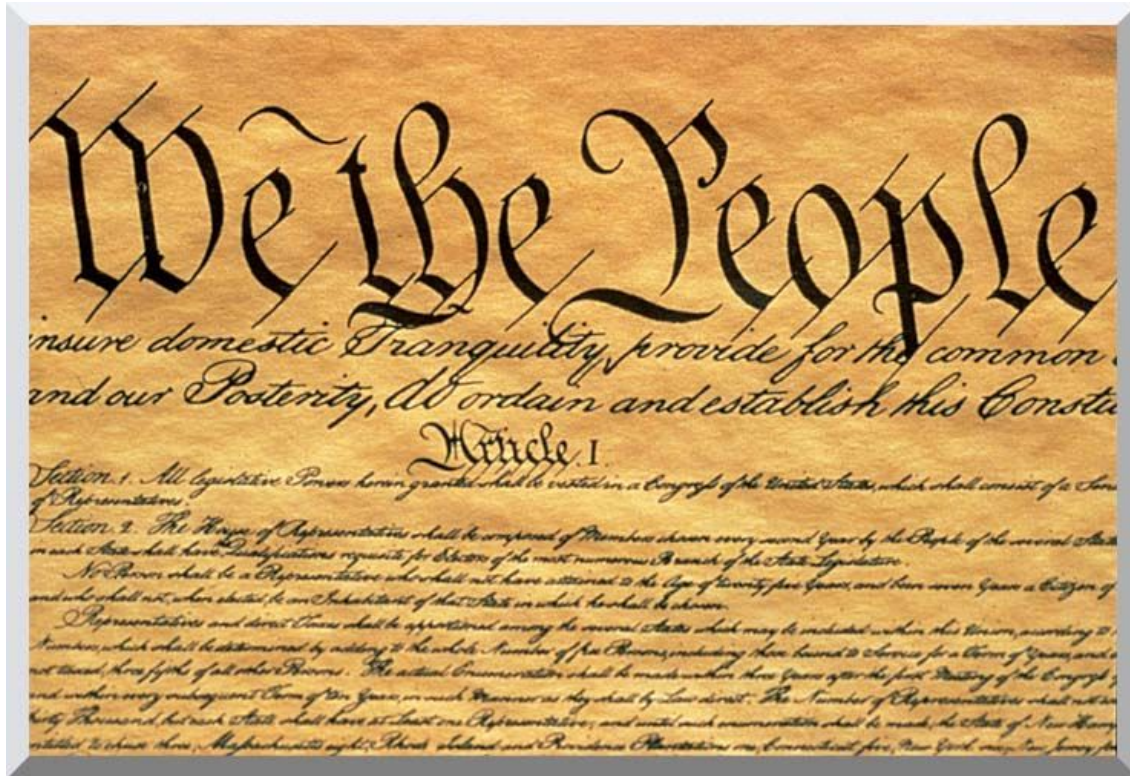 We the People
insure domestic Tranquility, provide for the common
and our Posterity, do ordain and establish this Constit
Article. I.
Section. 1. All legislative Powers herein granted shall be vested in a Congress of the United States, which shall consist of a Sena
of Representatives.
Section. 2. The House of Representatives shall be composed of Members chosen every second Year by the People of the several States
in each State shall have Qualifications requisite for Electors of the most numerous Branch of the State Legislature.
No Person shall be a Representative who shall not have attained to the Age of twenty five Years, and been seven Years a Citizen of
and who shall not, when elected, be an Inhabitant of that State in which he shall be chosen.
Representatives and direct Taxes shall be apportioned among the several States which may be included within this Union, according to
Numbers, which shall be determined by adding to the whole Number of free Persons, including those bound to Service for a Term of Years, and
not taxed, three fifths of all other Persons. The actual Enumeration shall be made within three Years after the first Meeting of the Congress
and within every subsequent Term of ten Years, in such Manner as they shall by Law direct. The Number of Representatives shall not
thirty Thousand, but each State shall have at Least one Representative; and until such enumeration shall be made, the State of New Ham
entitled to chuse three, Massachusetts eight, Rhode Island and Providence Plantations one, Connecticut five, New York six, New Jersey